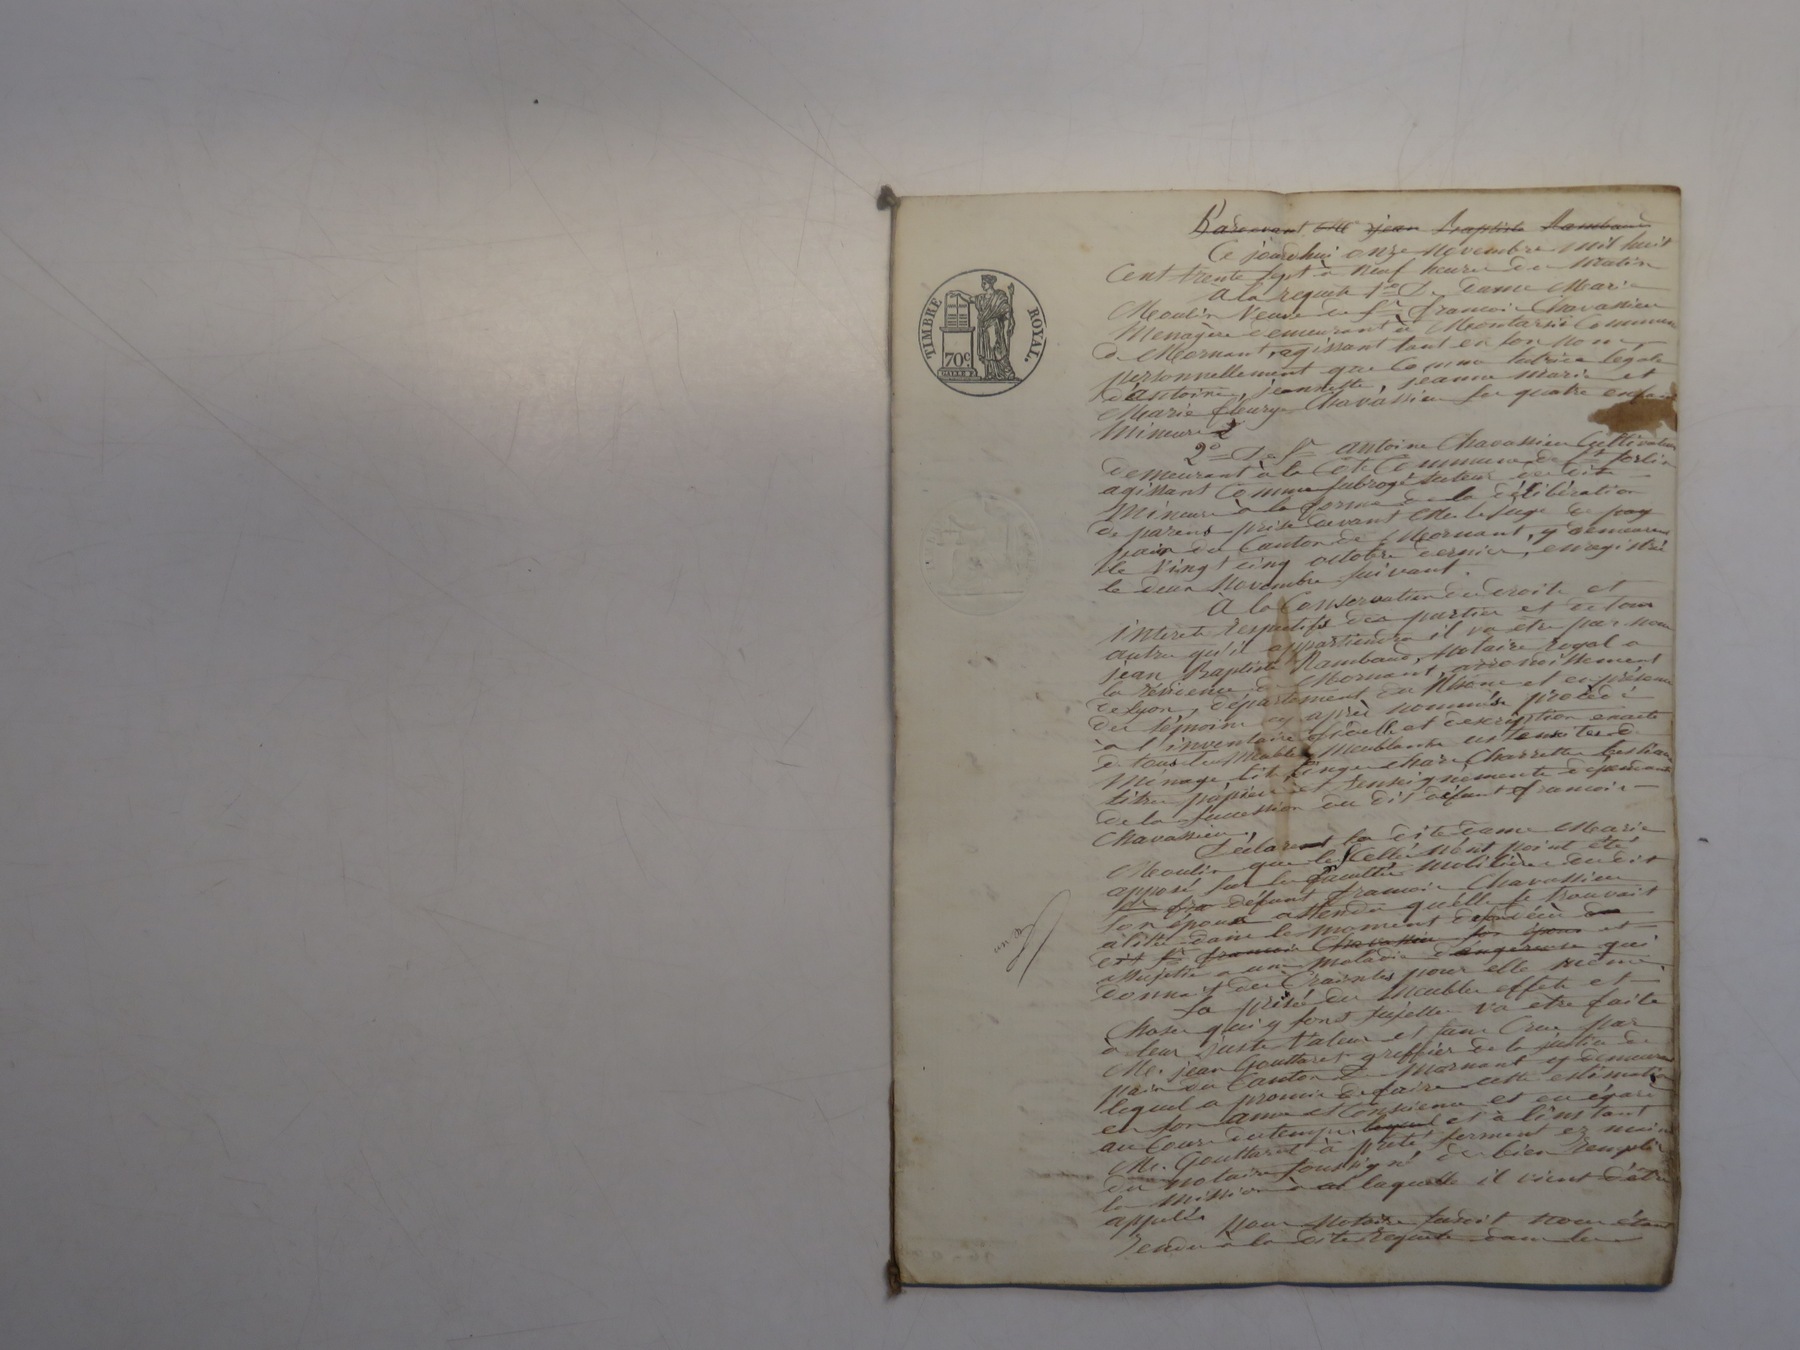 TIMBRE ROYAL.
70c.
Pardevant Me jean Baptiste Rambaud
Ce jourdhui onze Novembre mil huit
Cent trente sept à neuf heures du matin
A la requete 1o De Dame Marie
Moulin Veuve du Sr francois Chavassieu
Menagère demeurant à Montarsis Commune
de Mornant, agissant tant en son nom
personnellement que Comme tutrice légale
d'antoine, jeannette, jeanne Marie et
Marie fleurye Chavassieu ses quatre enfans
Mineurs
2o De Sr antoine Chavassieu Cultivateur
demeurant à la Cote Commune de St
agissant Comme subrogé tuteur des dits
Mineurs à la forme de la délibération
de parens prise devant Mr le juge de paix
du Canton de Mornant, y demeurant
le vingt cinq octobre dernier, enregistrée
le deux Novembre suivant.
A la Conservation des droits et
interets respectifs des parties et de tous
autres qu'il appartiendra il va être par nous
jean Baptiste Rambaud, Notaire royal a
la résidence de Mornant, arrondissement
de Lyon, département du Rhône et en présence
des témoins cy après nommés procédé
à l'inventaire fidelle et description exacte
de tous les Meubles Meublants ustensiles de
Ménage, Lit Linges Charrette bestiaux
titres papiers et renseignements dépendants
de la succession du dit défunt francois
Chavassieu,
Déclarent la dite dame Marie
Moulin que les scellés n'ont point été
apposé sur les facultés mobilières du dit
défunt francois Chavassieu
son époux attendu quelle se trouvait
alitée dans le moment du décès
dit Sr francois Chavassieu son époux et
assujetie a une maladie dangereuse qui
donnait des Craintes pour elle même
La prisée des Meubles effets et
Choses qui y sont sujettes va etre faite
à leur juste Valeur et sans Crue par
Me. jean Gouttaret greffier de la justice de
paix du Canton de Mornant y demeurant
lequel a promis de faire cette estimation
en son ame et Conscience et eu égard
au Cours du temps lequel et à l'instant
Me. Gouttaret à prêté serment ez mains
du Notaire soussigné de bien remplir
la Mission à laquelle il vient d'être
appellé
Nous étant
rendu à la dite requete dans le